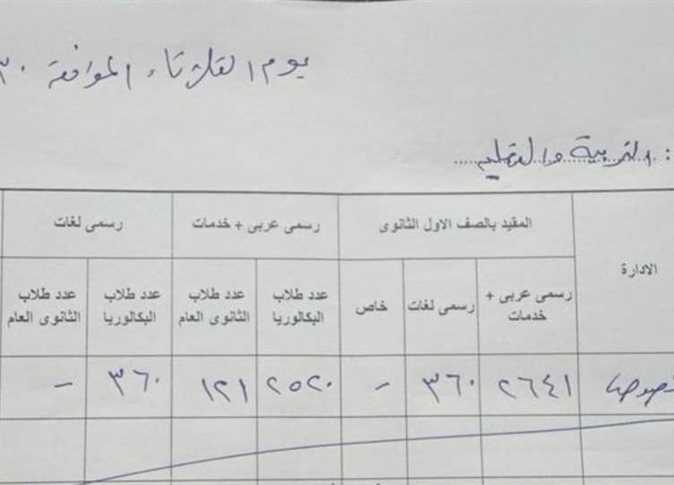 يوم الثلاثاء الموافق ٣٠
: التربية والتعليم
الادارة
المقيد بالصف الاول الثانوى
رسمى عربى + خدمات
رسمى لغات
رسمى عربى + خدمات
رسمى لغات
خاص
عدد طلاب البكالوريا
عدد طلاب الثانوى العام
عدد طلاب البكالوريا
عدد طلاب الثانوى العام
٢٦٤١ ٣٦٠ - ٢٥٢٠ ١٢١ ٣٦٠ -